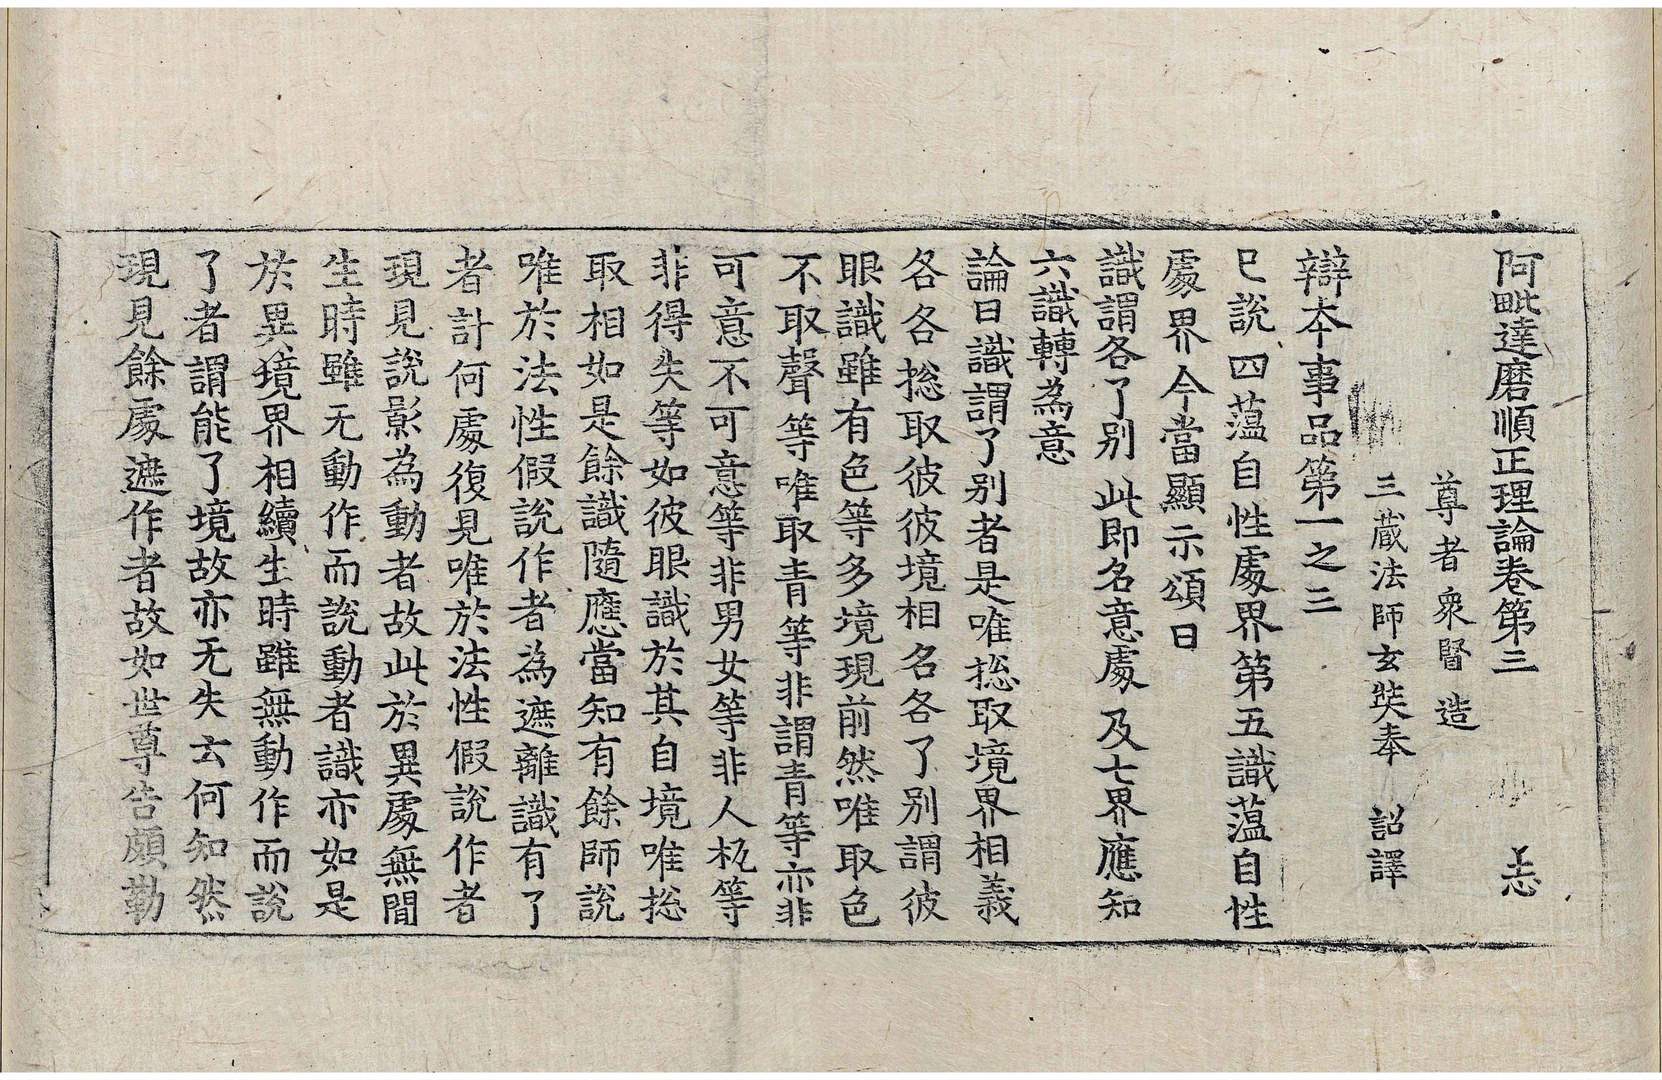 阿毗達磨順正理論卷第三 忐
尊者衆賢造
三蔵法師玄奘奉 詔譯
辯本事品第一之三
已說四薀自性處界第五識薀自性
處界今當顯示頌曰
識謂各了别 此即名意處 及七界應知
六識轉為意
論曰識謂了别者是唯揔取境界相義
各各揔取彼彼境相名各了别謂彼
眼識雖有色等多境現前然唯取色
不取聲等唯取青等非謂青等亦非
可意不可意等非男女等非人杌等
非得失等如彼眼識於其自境唯揔
取相如是餘識隨應當知有餘師說
唯於法性假說作者為遮離識有了
者計何處復見唯於法性假說作者
現見說影為動者故此於異處無間
生時雖无動作而說動者識亦如是
於異境界相續生時雖無動作而說
了者謂能了境故亦无失云何知然
現見餘處遮作者故如世尊告頗勒